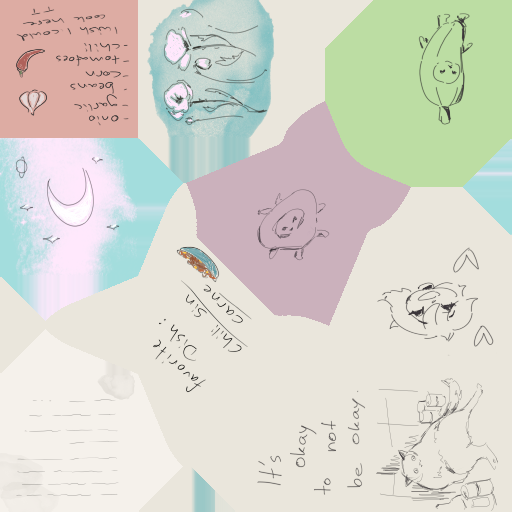 - onio
- garlic
beans
- corn
- tomatoes
- chili
I wish I could
cook here
TT
favorite
Dish:
Chili sin
carne
It's
okay
to not
be okay.